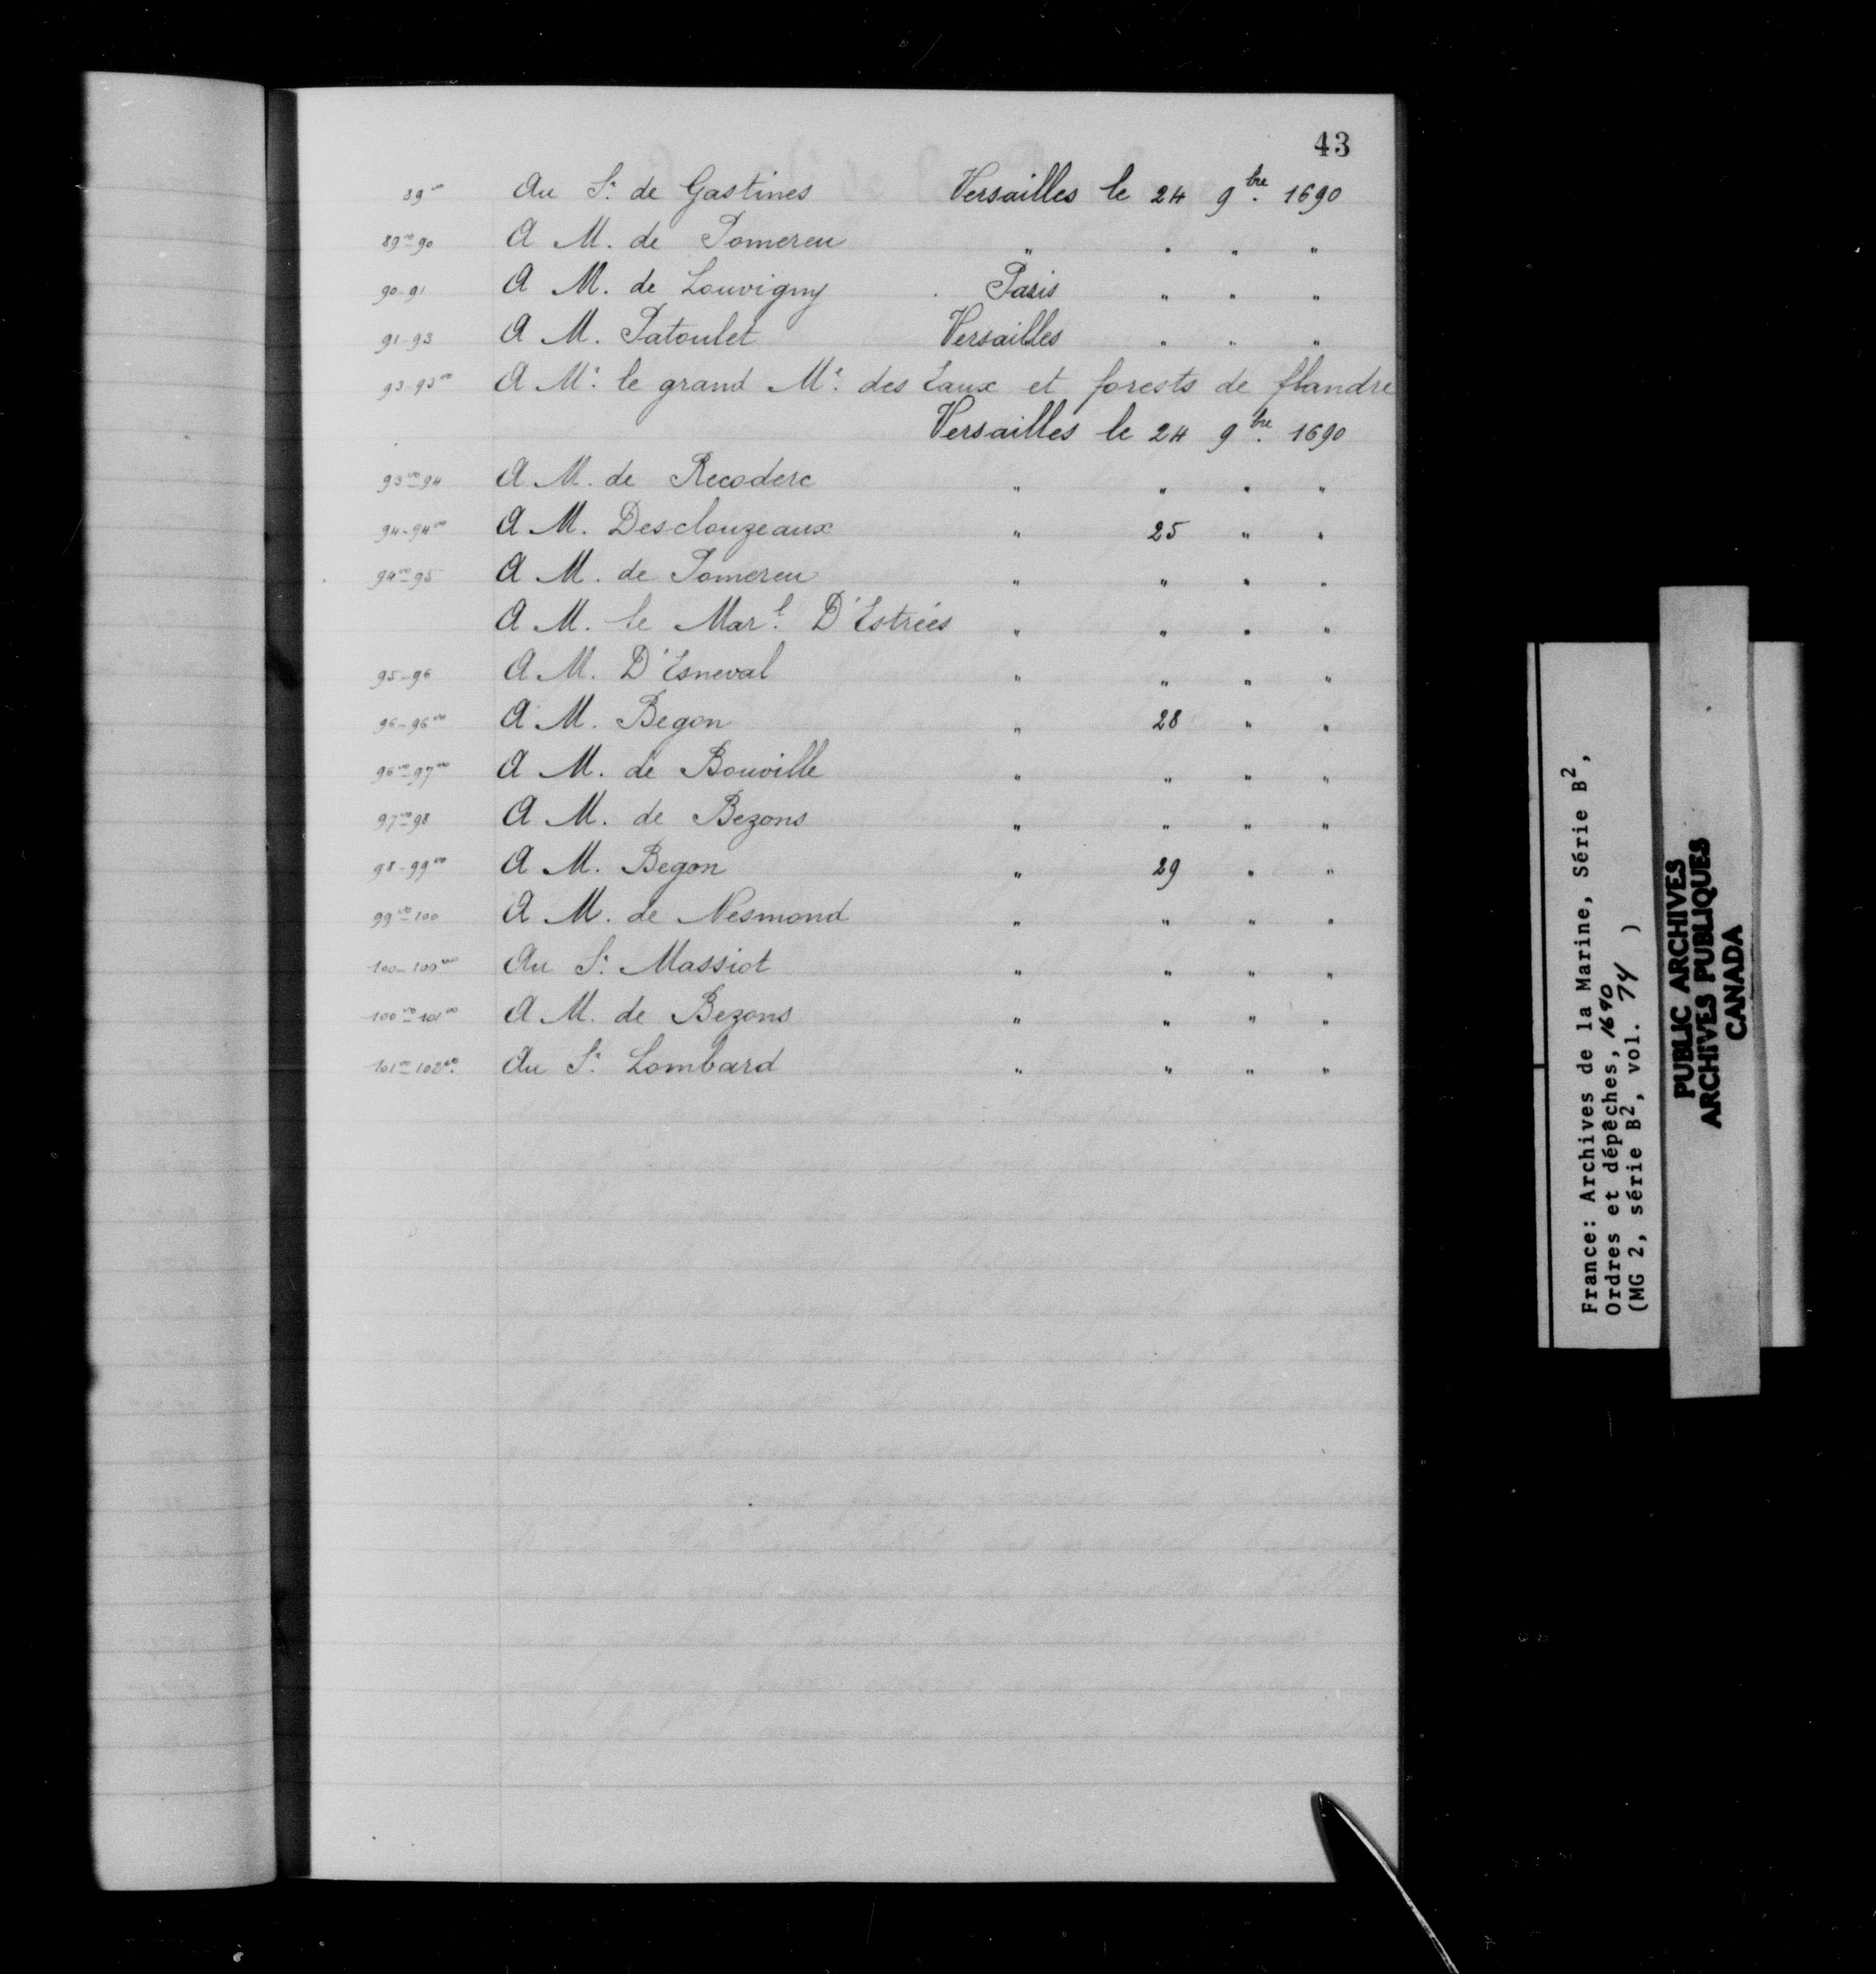 43
89vo Au Sr. de Gastines Versailles le 24 9bre. 1690
89vo-90 A M. de Pomereu " " " "
90-91 A M. de Louvigny Paris " " "
91-93 A M. Patoulet Versailles " " "
93-93vo A Mr. le grand Me. des Eaux et forests de flandre
Versailles le 24 9bre. 1690
93vo-94 A M. de Recoderc " " " "
94-94vo A M. Desclouzeaux " 25 " "
94vo-95 A M. de Pomereu " " " "
A M. le Marl. D'Estrées " " " "
95-96 A M. D'Esneval " " " "
96-96vo A M. Begon " 28 " "
96vo-97vo A M. de Bouville " " " "
97vo-98 A M. de Bezons " " " "
98-99vo A M. Begon " 29 " "
99vo-100 A M. de Nesmond " " " "
100-100vo Au Sr. Massiot " " " "
100vo-101vo A M. de Bezons " " " "
101vo-102vo. Au Sr. Lombard " " " "
France: Archives de la Marine, Série B2,
Ordres et dépêches, 1690
(MG 2, série B2, vol. 74 )
PUBLIC ARCHIVES
ARCHIVES PUBLIQUES
CANADA